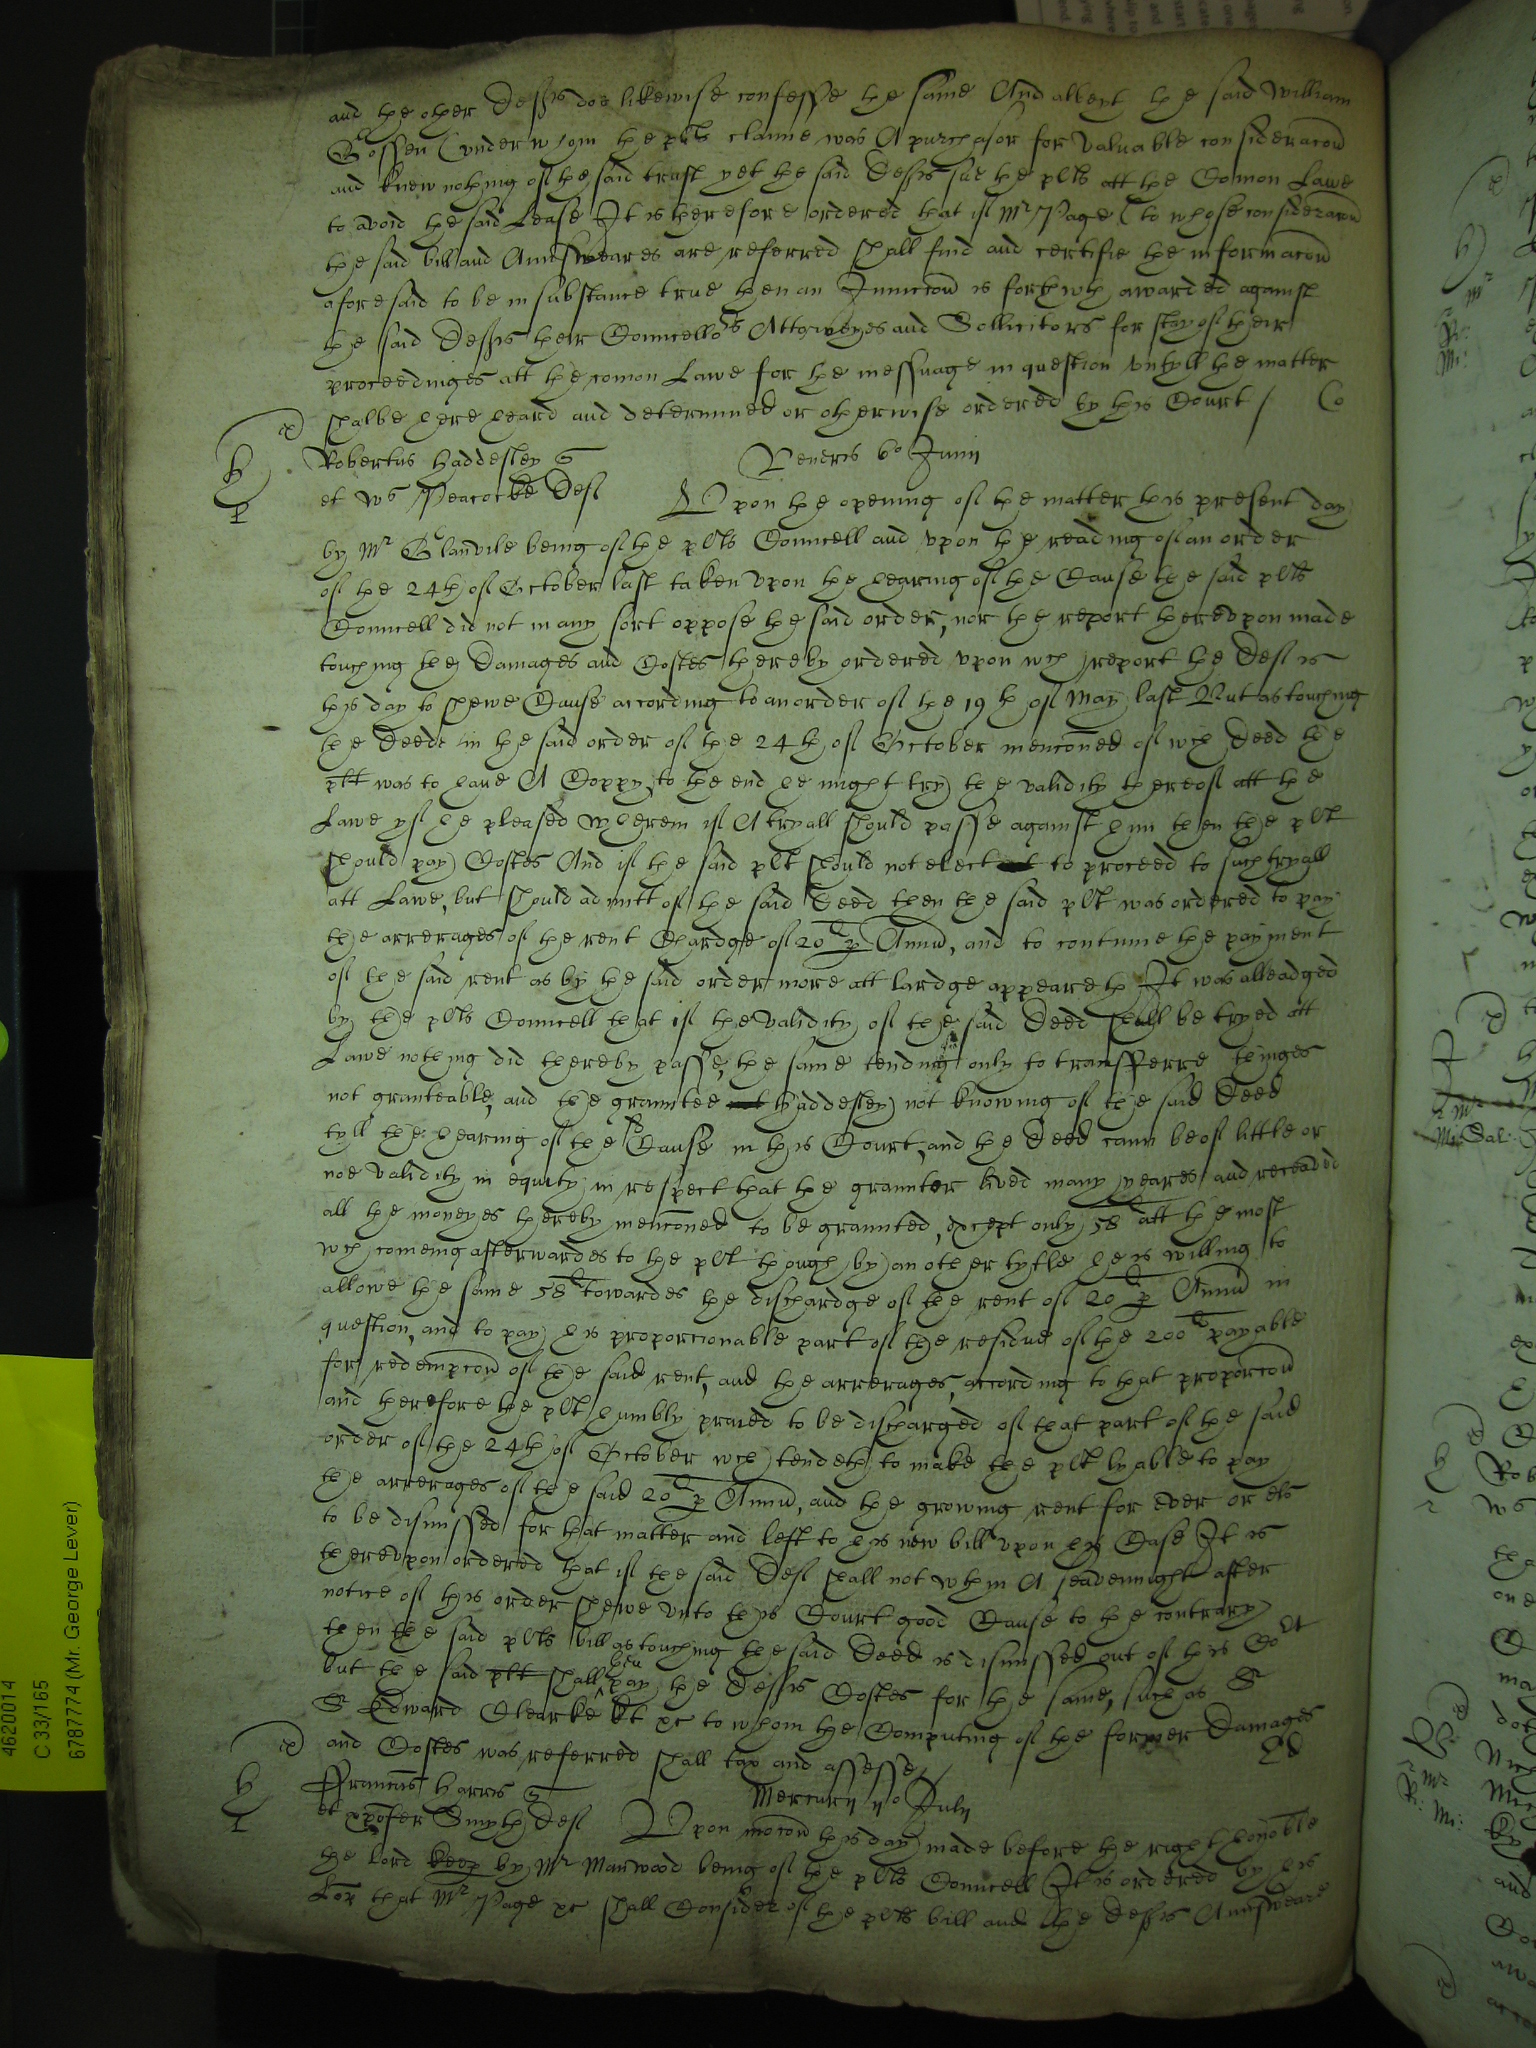 and the other Defts doe likewise confesse the same And albeyt the said William
Gossen (under whom the plts clayme was A purchasor for valuable consideracon
and knew nothing of the said trust yet the said Defts sue the plts att the Comon Lawe
to avoid the said Lease It is therefore ordered that if Mr Page (to whose consideracon
the said bill and Aunsweares are referred shall find and certifie the informacon
aforesaid to be in substance true then an Iniunccon is forthwth awarded against
the said Defts their Councellors Attorneyes and Sollicitors for stay of their
proceedinges att the comon Lawe for the messuage in question untyll the matter
shalbe here heard and determined or otherwise ordered by this Court / Co
Robertus Haddesley
et ws Peacocke Def
Veneris 6o Junii
Upon the opening of the matter this present day
by Mr Glanvile being of the plts Councell and upon the reading of an order
of the 24th of October last taken upon the hearing of the Cause the said plts
Councell did not in any sort oppose the said order, nor the report thereupon made
touching the Damages and Costes thereby ordered upon wch report the Def is
this day to shewe Cause according to an order of the 19th of May last But as touching
the Deede in the said order of the 24th of October menconed of wch Deed the
plt was to have A Coppy to the end he might try the validity thereof att the
Lawe yf he pleased Wherein if A tryall should passe against him then the plt
should pay Costes And if the said plt should not elect to proceed to such tryall
att Lawe, but should admitt of the said Deed then the said plt was ordered to pay
the arrerages of the rent Chardge of 20li p Annu, and to continue the payment
of the said rent as by the said order more att lardge appeareth It was alleadged
by the plts Councell that if the validity of the said Deed shall be tryed att
Lawe nothing did thereby passe, the same tending only to transferre thinges
not granteable, and the grauntee Haddesley not knowing of the said Deed
tyll the hearing of the Cause in this Court, and the Deed cann be of little or
noe validity in equity in respect that the graunter lived many yeares and receaved
all the moneyes thereby menconed to be graunted, except only 58li att the most
wch comeing afterwardes to the plt though by an other tytle he is willing to
allowe the same 58li towardes the dischardge of the rent of 20li p Annu in
question, and to pay his proporcionable part of the residue of the 200li payable
for redempcon of the said rent, and the arrerages, according to that proporcon
and therefore the plt humbly praied to be discharged of that part of the said
order of the 24th of October wch tendeth to make the plt lyable to pay
the arrerages of the said 20li p Annu, and the growing rent for ever or els
to be dismissed for that matter and left to his new bill upon his Case It is
thereupon ordered that if the said Def shall not wthin A seavennight after
notice of this order shewe unto this Court good Cause to the contrary
then the said plts bill as touching the said Deed is dismissed out of this Cort
but the said plt shall then pay the Defts Costes for the same, such as Sr
Sr Edward Clearke kt xc to whom the Computing of the former Damages
and Costes was referred shall tax and assesse / Ed
Franciscus Harris
et xpofer Smyth Def
Mercurii 11o Julii
Upon mocon this day made before the right honoble
the lord keep by Mr Manwood being of the plts Councell It is ordered by his
Lop that Mr Page xc shall Consider of the plts bill and the Defts Aunsweare
4620014
C 33/165
6787774 (Mr. George Lever)